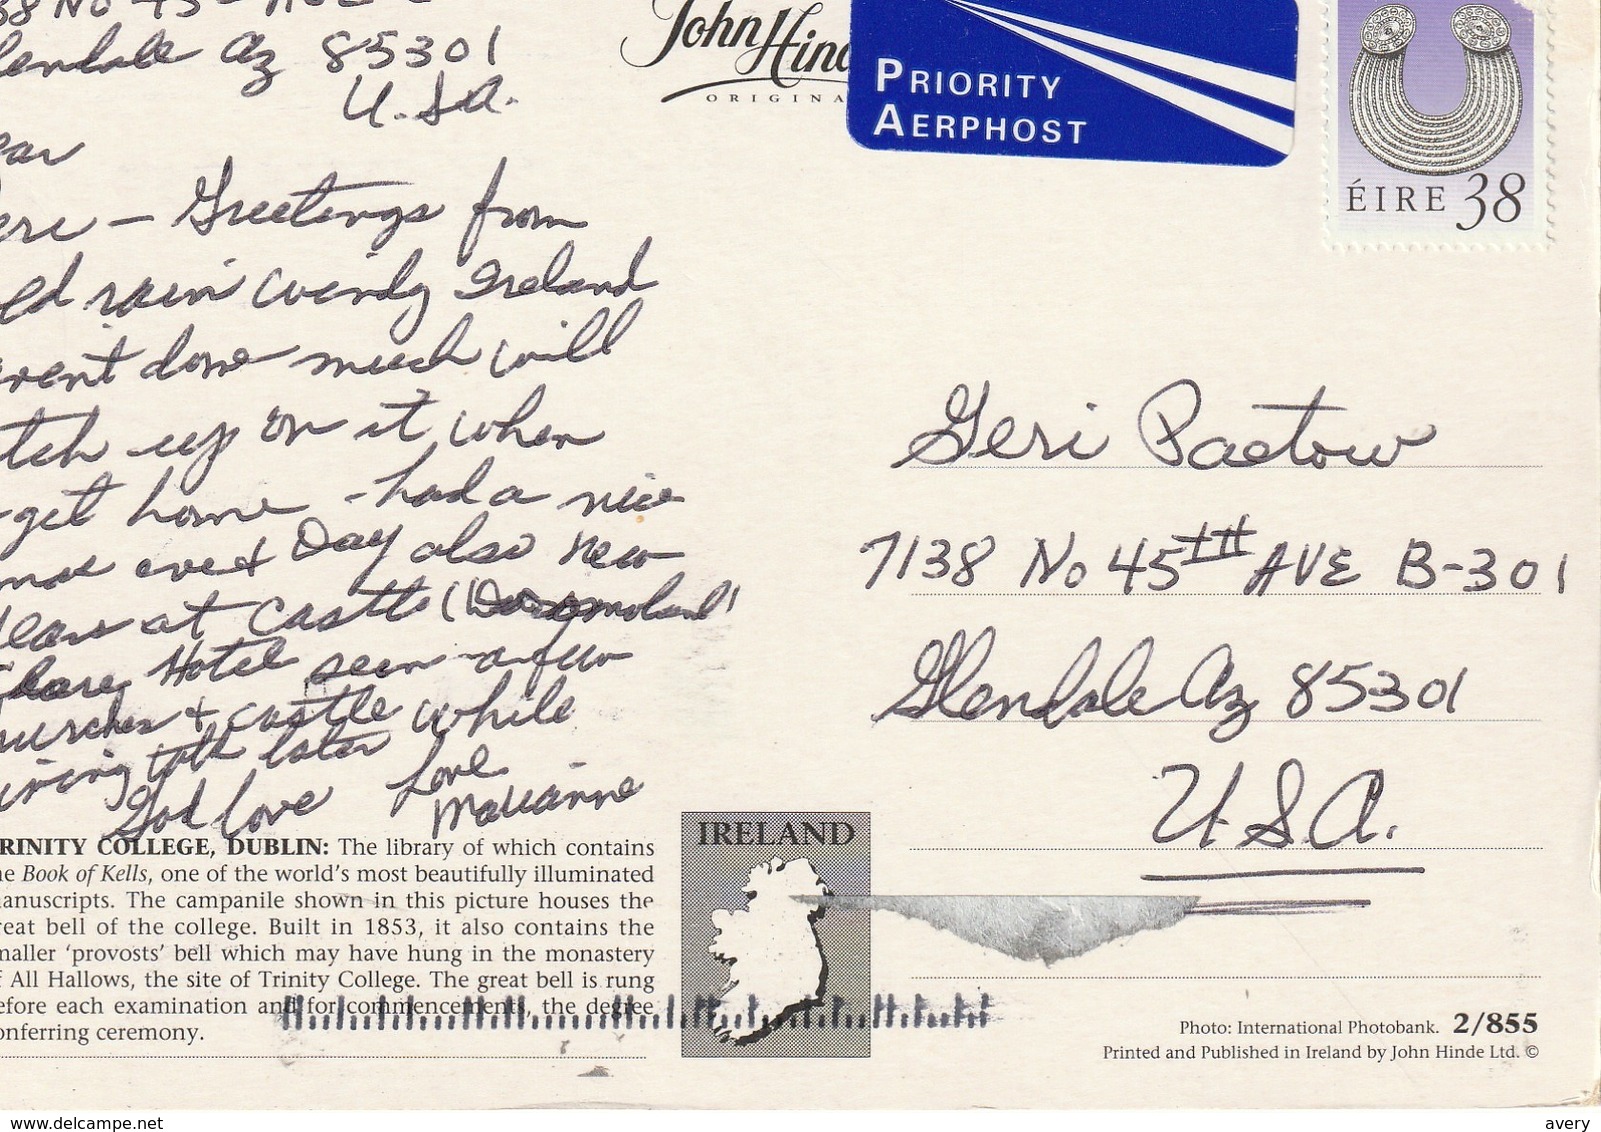 38 No 45
lendale Az 85301
U.S.A.
ear
eri - Greetings from
ld rain windy Ireland
vent done much will
tch up on it when
get home - had a nice
mas eve + Day also new
ears at Castle
Clare Hotel seen a few
urches + castle while
iving talk later
God love Love
Marianne
RINITY COLLEGE, DUBLIN: The library of which contains
he Book of Kells, one of the world's most beautifully illuminated
anuscripts. The campanile shown in this picture houses the
reat bell of the college. Built in 1853, it also contains the
maller 'provosts' bell which may have hung in the monastery
f All Hallows, the site of Trinity College. The great bell is rung
efore each examination and for commencements, the degree
onferring ceremony.
John Hind
ORIGINA
PRIORITY
AERPHOST
ÉIRE 38
Geri Paetow
7138 No 45TH AVE B-301
Glendale Az 85301
U.S.A.
IRELAND
Photo: International Photobank. 2/855
Printed and Published in Ireland by John Hinde Ltd. ©
www.delcampe.net
avery